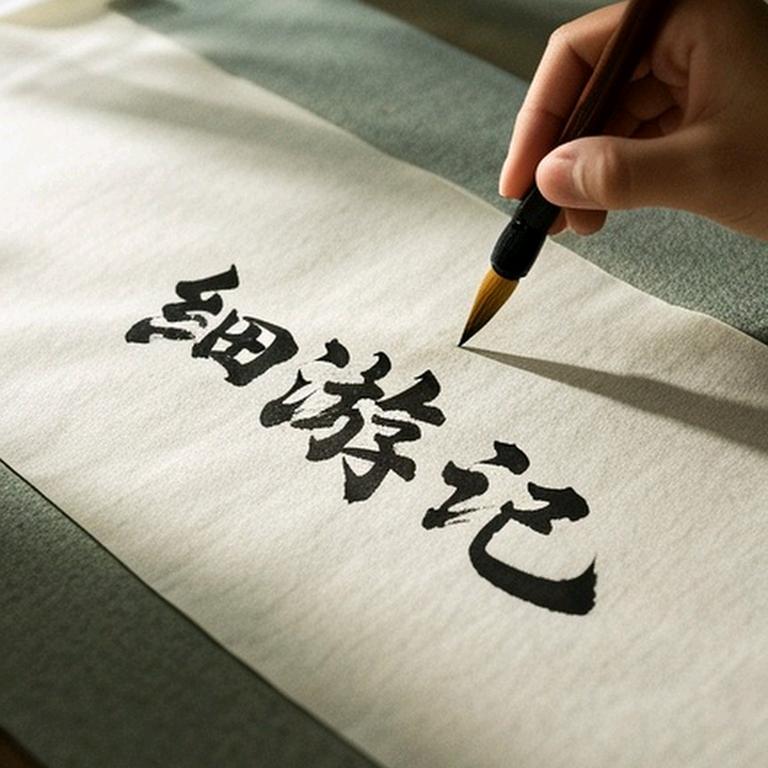 细游记